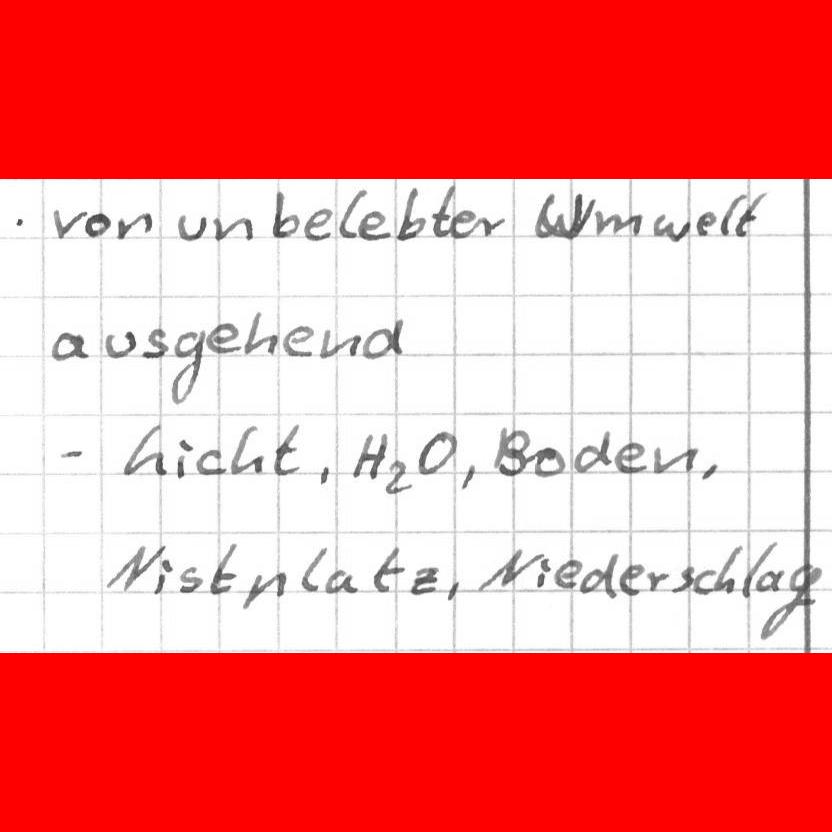 · von unbelebter Umwelt
ausgehend
- Licht, H₂O, Boden,
Nistplatz, Niederschlag